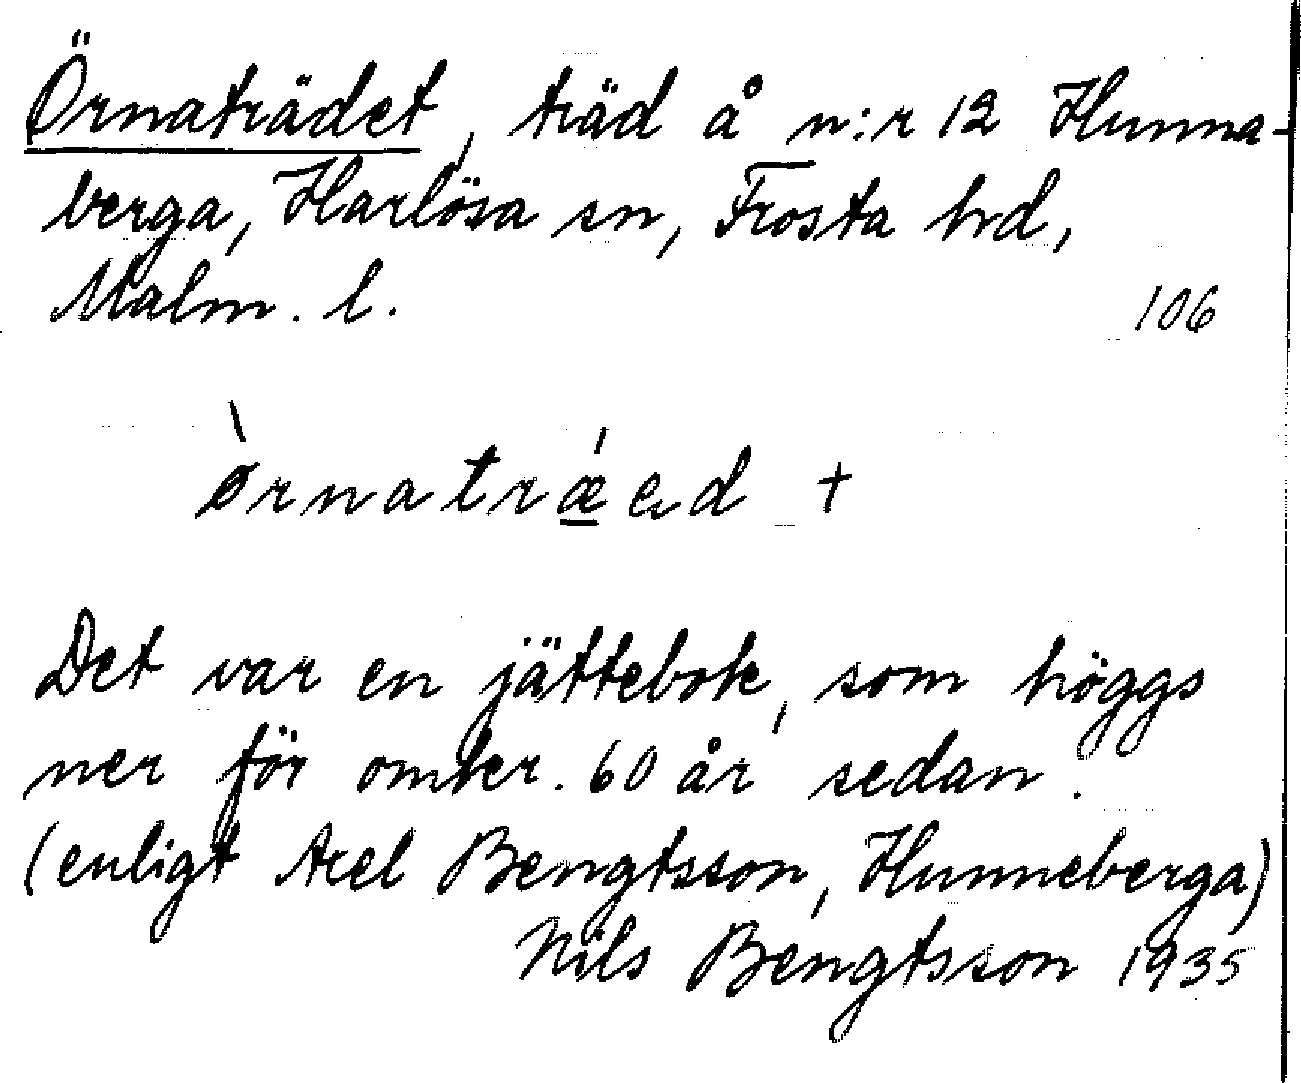 Örnaträdet, träd å n:r 12 Hunna-
berga, Harlösa sn, Frosta hd,
Malm. l. 106
ø̀rnatrǽed +
Det var en jättebok, som höggs
ner för omkr. 60 år sedan.
(enligt Axel Bengtsson, Hunneberga)
Nils Bengtsson 1935